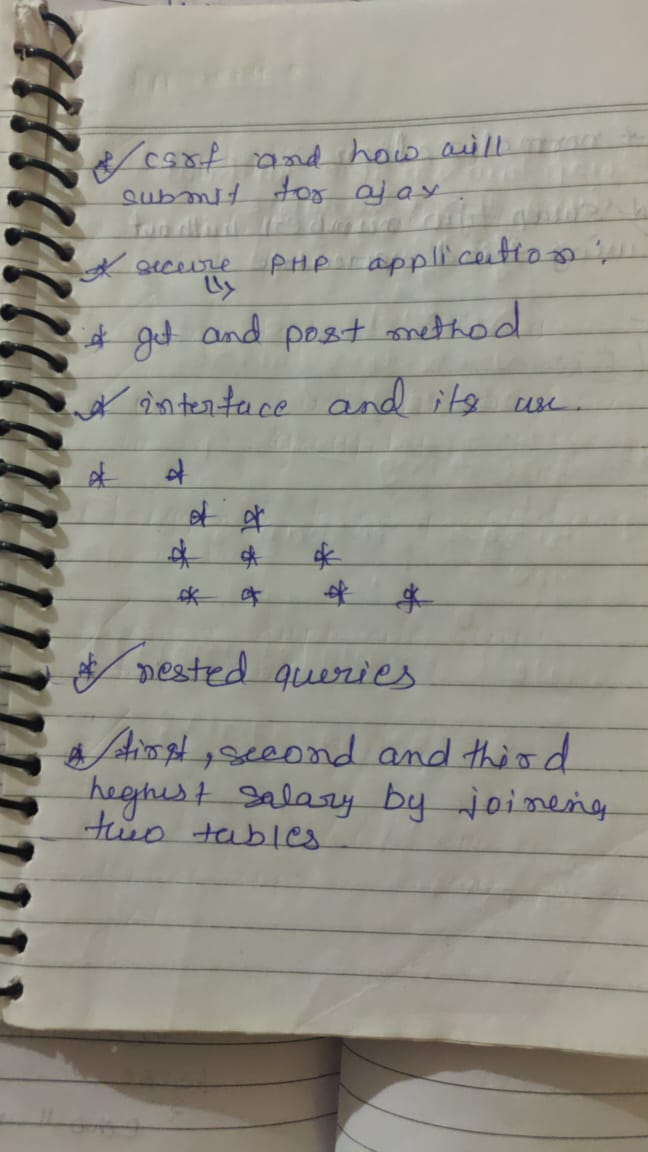 * csrf and how will
submit for ajax.
* secure PHP application:
* get and post method
* interface and its use.
* *
* *
* * *
* * * *
* nested queries
* first, second and third
heghest salary by joineing
two tables